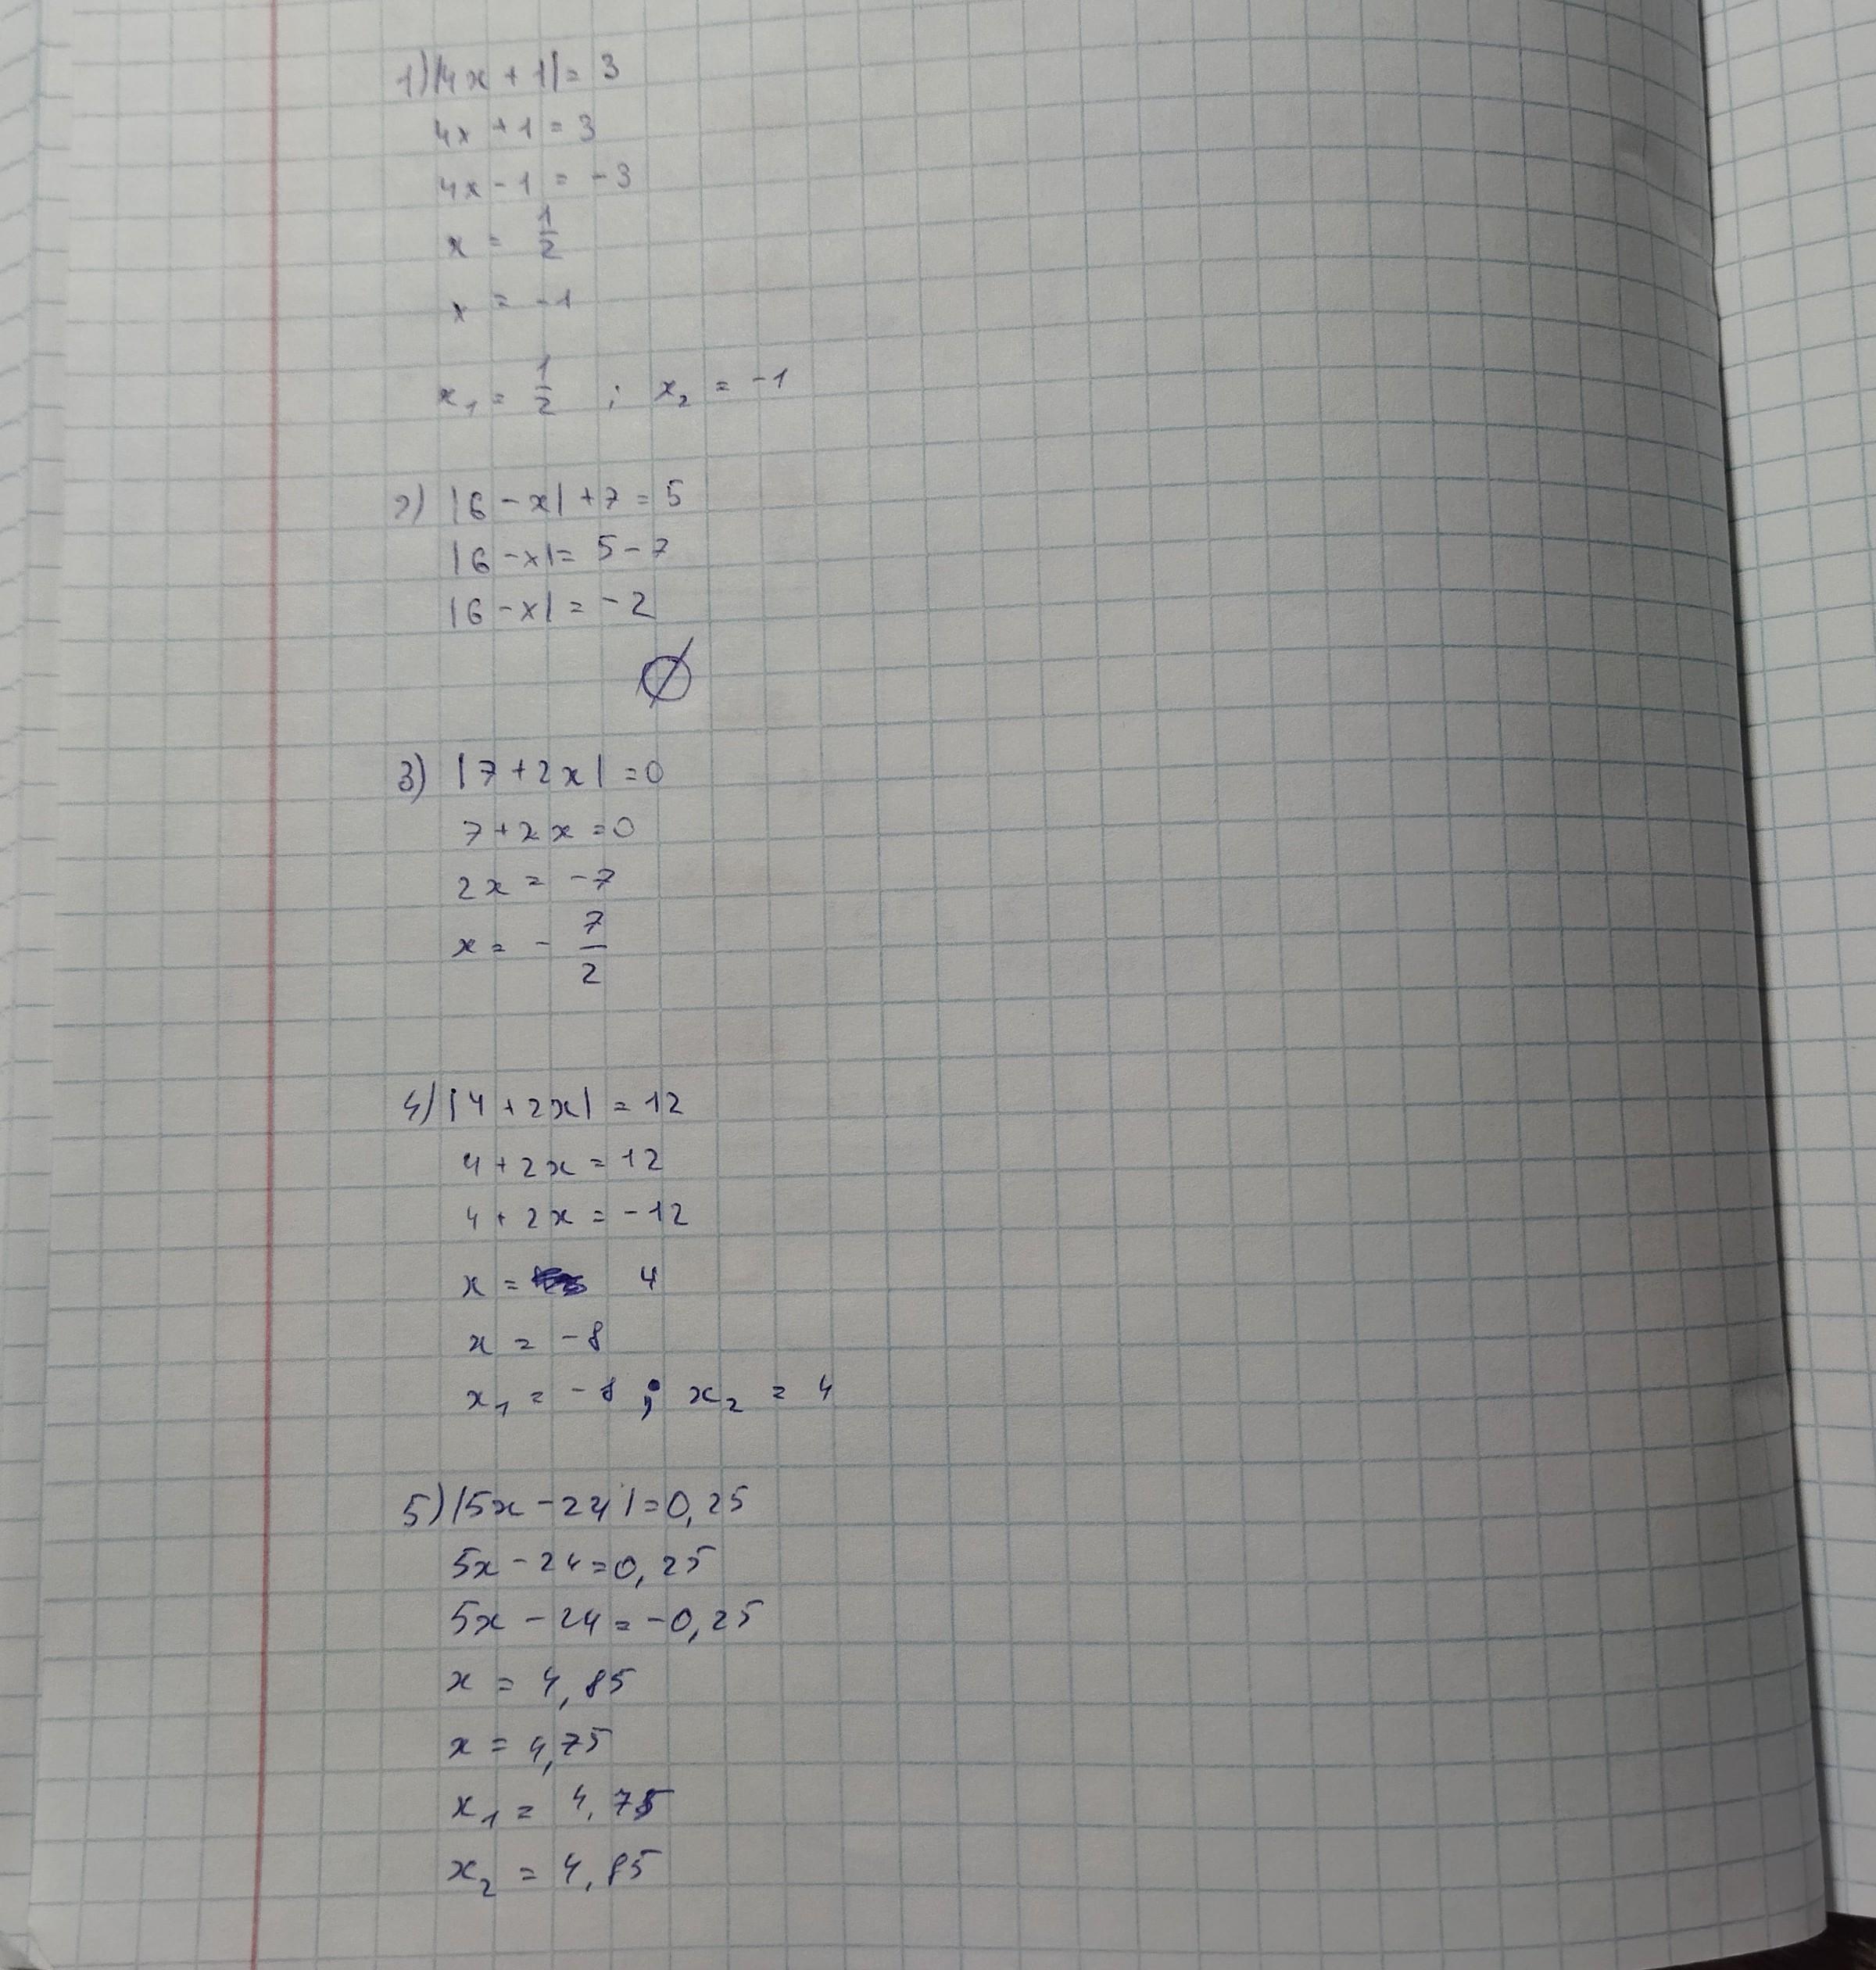 1) |4x + 1| = 3
4x + 1 = 3
4x - 1 = -3
x = 1/2
x = -1
x₁ = 1/2 ; x₂ = -1
2) |6 - x| + 7 = 5
|6 - x| = 5 - 7
|6 - x| = -2
∅
3) |7 + 2x| = 0
7 + 2x = 0
2x = -7
x = - 7/2
4) |4 + 2x| = 12
4 + 2x = 12
4 + 2x = -12
x = 4
x = -8
x₁ = -8 ; x₂ = 4
5) |5x - 24| = 0,25
5x - 24 = 0,25
5x - 24 = -0,25
x = 4,85
x = 4,75
x₁ = 4,75
x₂ = 4,85